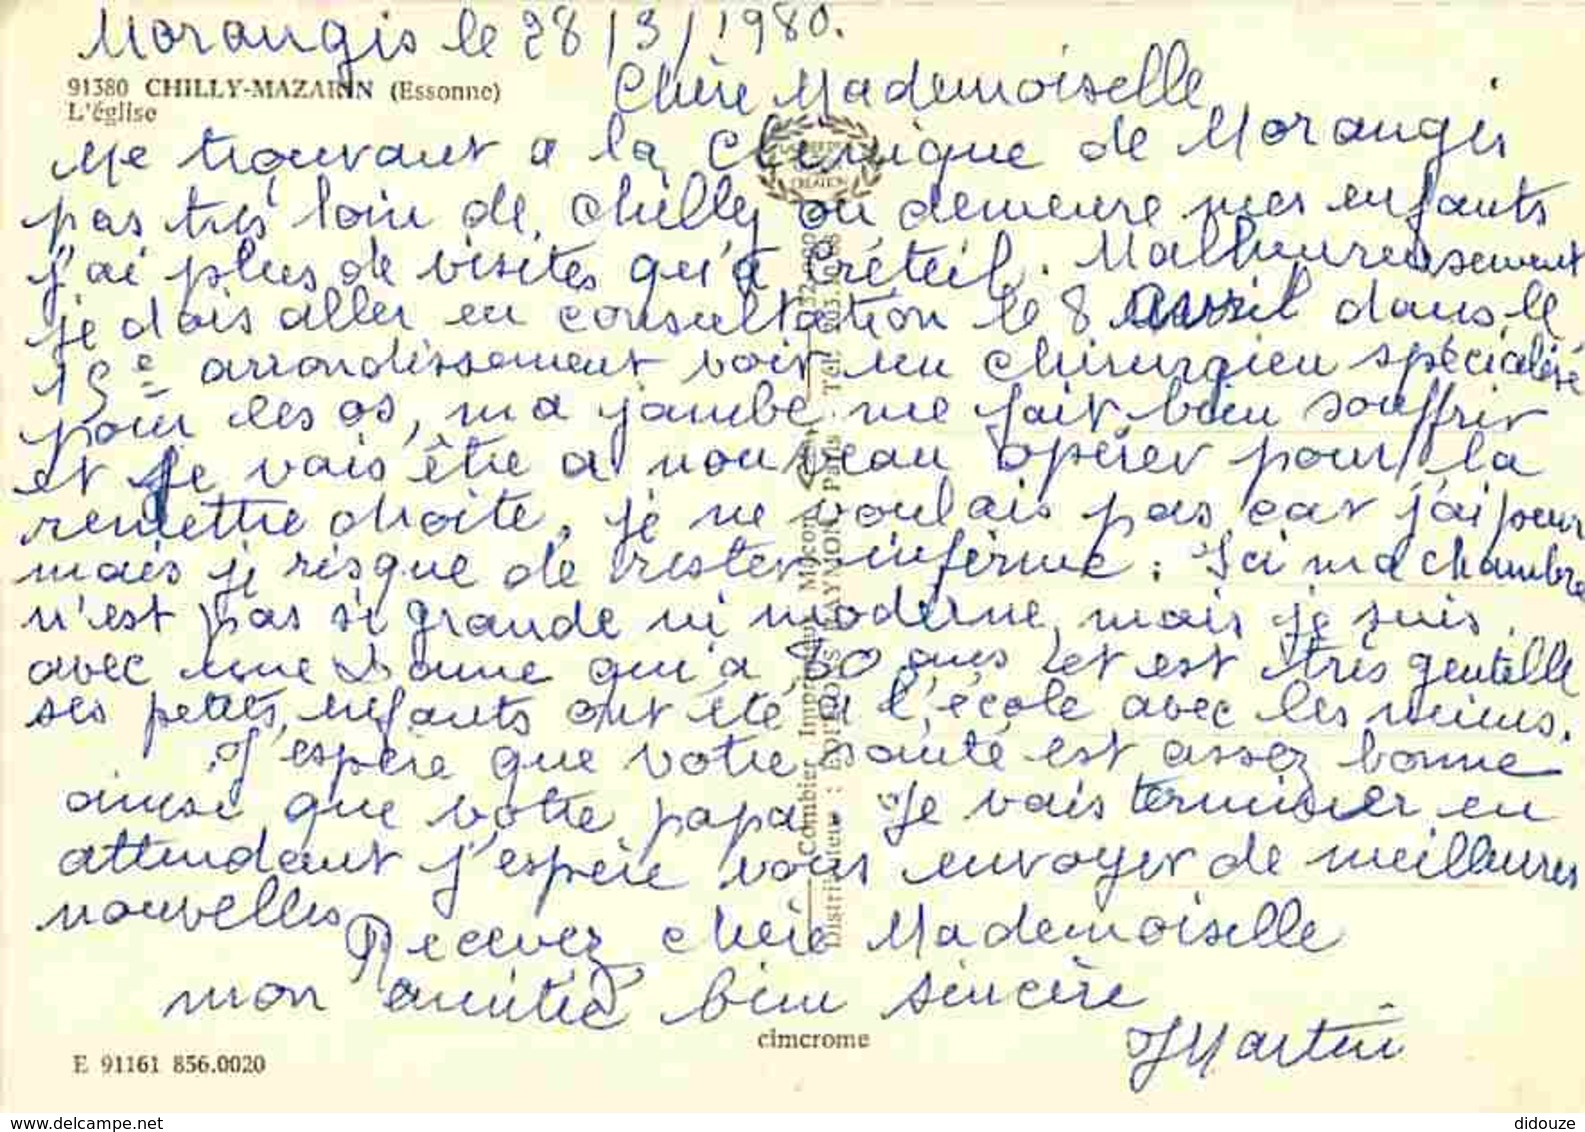 Morangis le 28/3/1980.
91380 CHILLY-MAZARIN (Essonne)
L'église
Chère Mademoiselle
Me trouvant a la Clinique de Morangis
pas très loin de Chilly ou demeure mes enfants
j'ai plus de visites qu'à Créteil. Malheureusement
je dois aller en consultation le 8 avril dans le
15e arrondissement voir un chirurgien spécialisé
pour les os, ma jambe me fait bien souffrir
et je vais être a nouveau opérer pour la
remettre droite, je ne voulais pas car j'ai peur
mais je risque de rester infirme. Ici ma chambre
n'est pas si grande ni moderne, mais je suis
avec une Dame qui a 80 ans et est très gentille
ses petits enfants ont été à l'école avec les miens.
J'espère que votre santé est assez bonne
ainsi que votre papa. Je vais terminer en
attendant j'espère vous envoyer de meilleures
nouvelles
Recevez chère Mademoiselle
mon amitié bien sincère
JMartin
CRÉATION
Combier Imprimeur Mâcon
Distributeur : EDITIONS RAYMON Paris - Tél.
cimcrome
E 91161 856.0020
delcampe.net
didouze